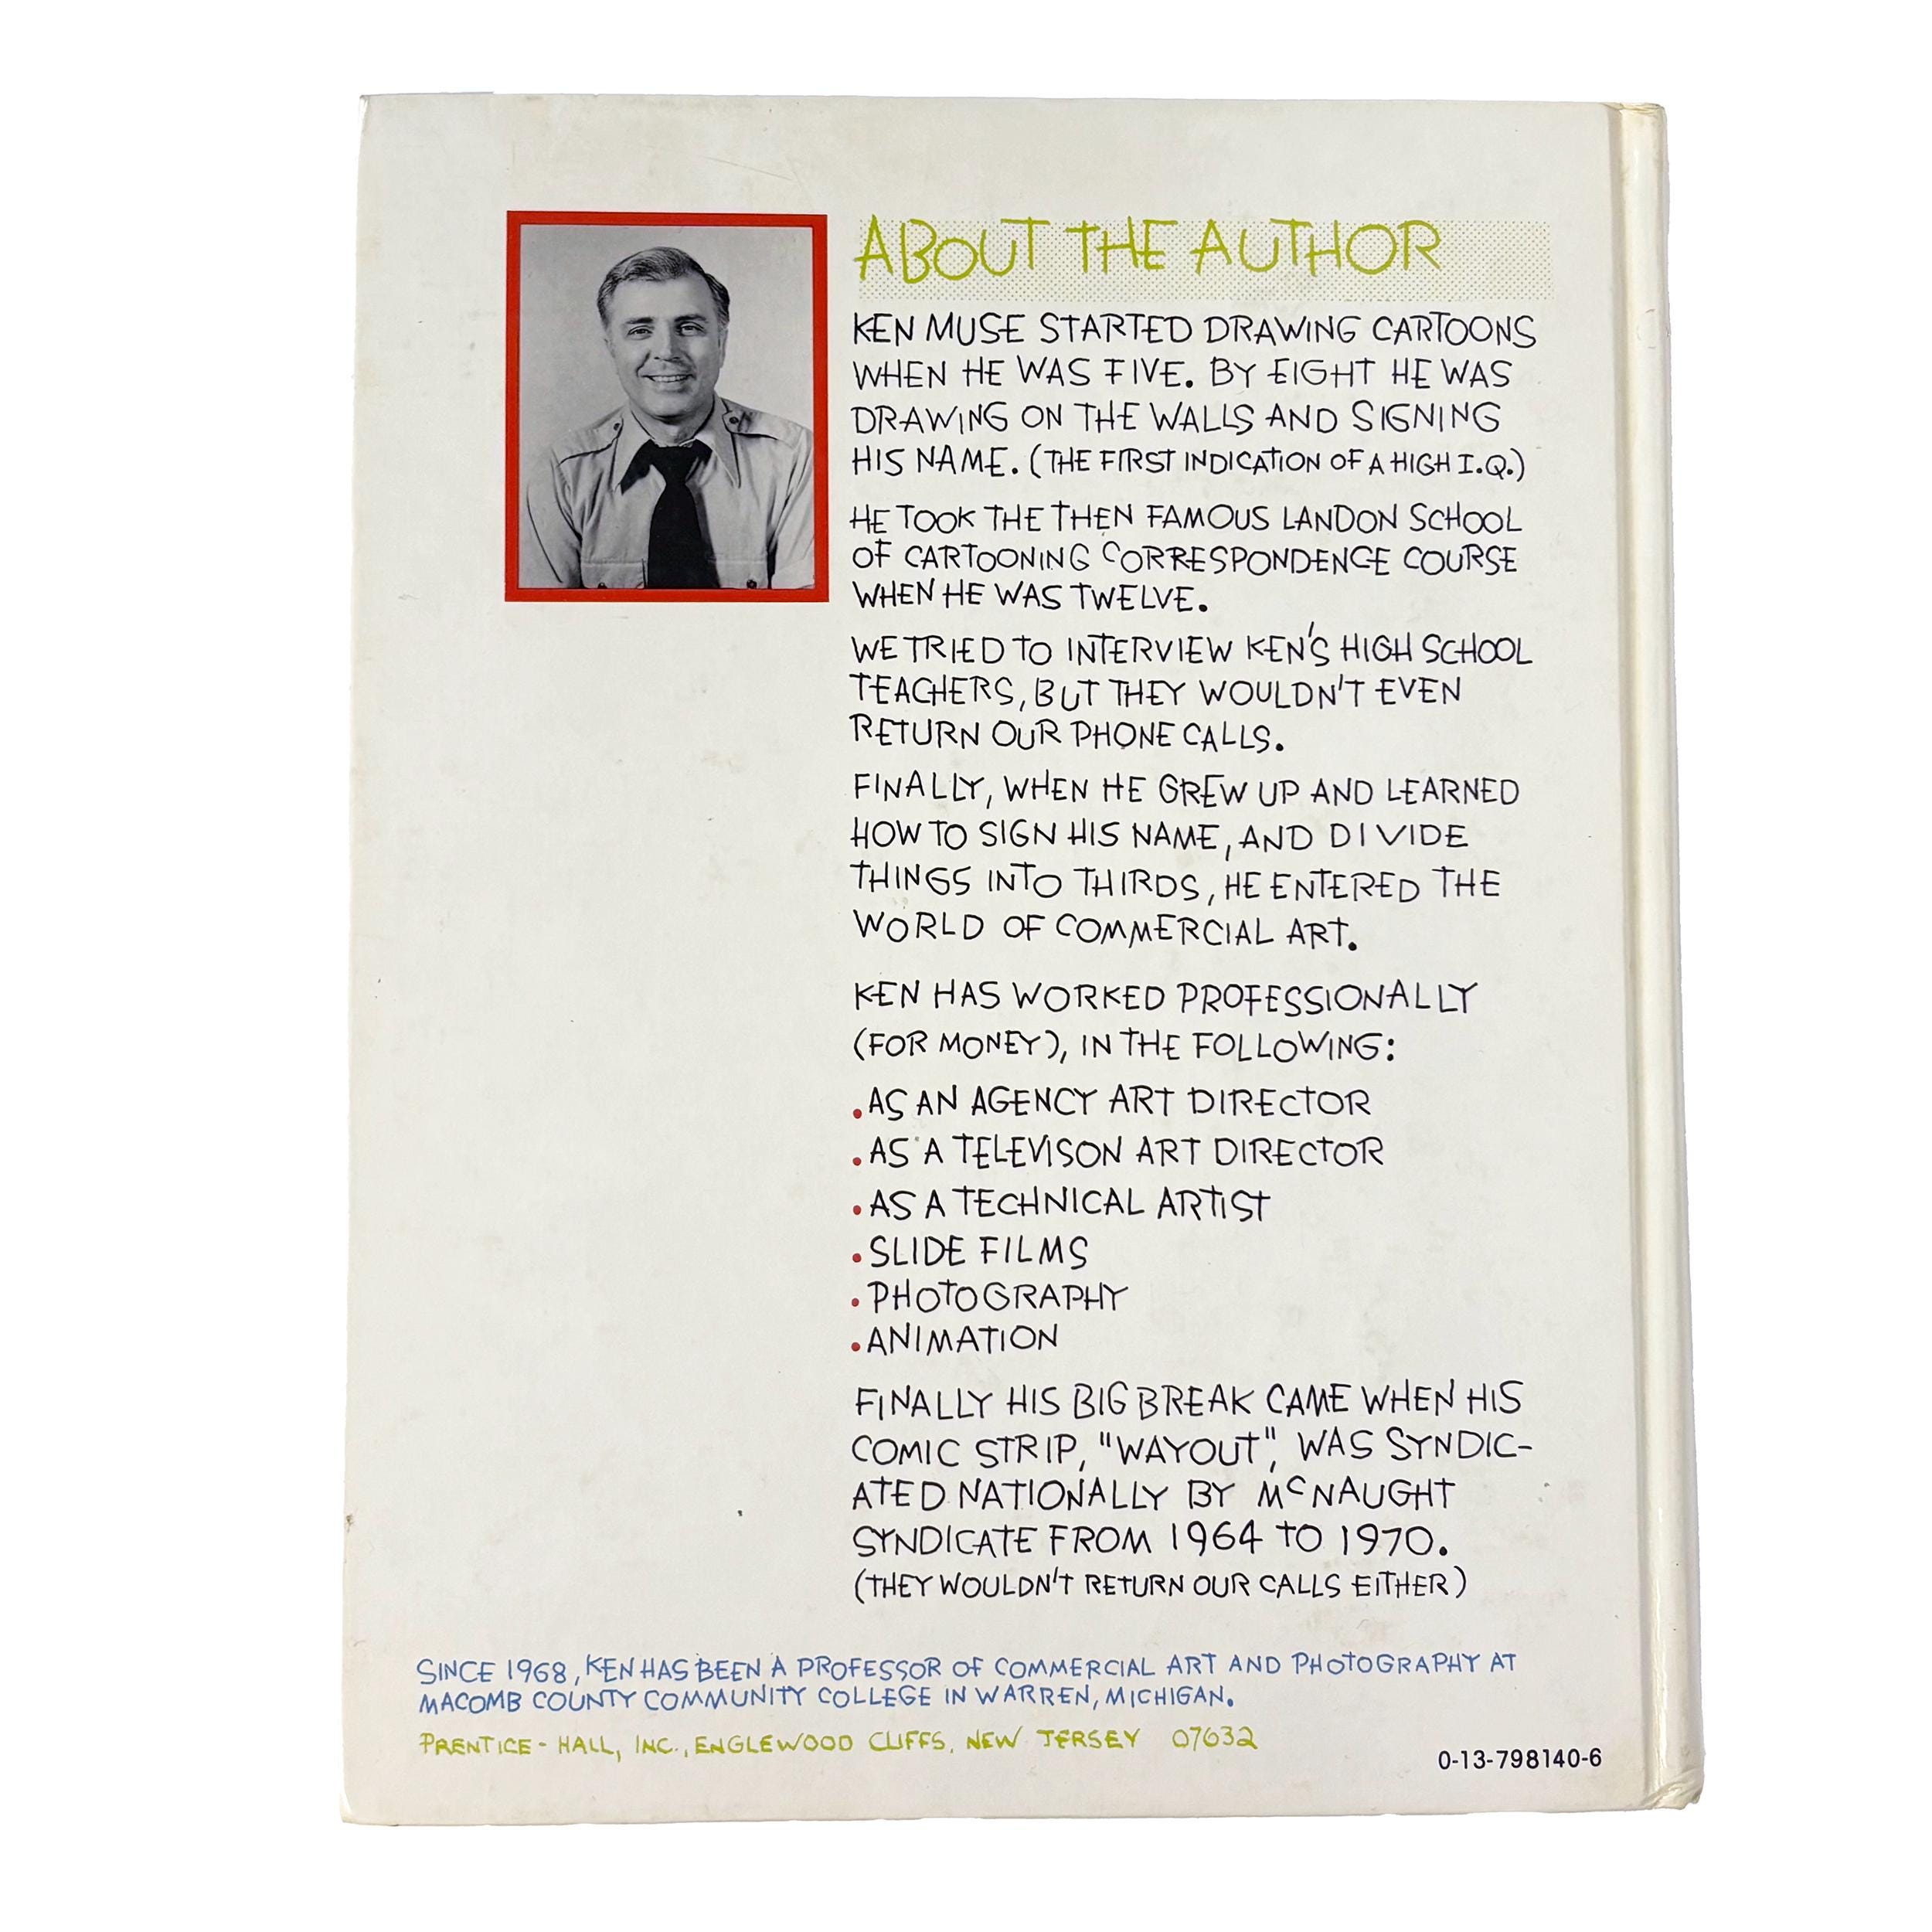 ABOUT THE AUTHOR
KEN MUSE STARTED DRAWING CARTOONS
WHEN HE WAS FIVE. BY EIGHT HE WAS
DRAWING ON THE WALLS AND SIGNING
HIS NAME. (THE FIRST INDICATION OF A HIGH I.Q.)
HE TOOK THE THEN FAMOUS LANDON SCHOOL
OF CARTOONING CORRESPONDENCE COURSE
WHEN HE WAS TWELVE.
WE TRIED TO INTERVIEW KEN'S HIGH SCHOOL
TEACHERS, BUT THEY WOULDN'T EVEN
RETURN OUR PHONE CALLS.
FINALLY, WHEN HE GREW UP AND LEARNED
HOW TO SIGN HIS NAME, AND DIVIDE
THINGS INTO THIRDS, HE ENTERED THE
WORLD OF COMMERCIAL ART.
KEN HAS WORKED PROFESSIONALLY
(FOR MONEY), IN THE FOLLOWING:
. AS AN AGENCY ART DIRECTOR
. AS A TELEVISON ART DIRECTOR
. AS A TECHNICAL ARTIST
. SLIDE FILMS
. PHOTOGRAPHY
. ANIMATION
FINALLY HIS BIG BREAK CAME WHEN HIS
COMIC STRIP, "WAYOUT", WAS SYNDIC-
ATED NATIONALLY BY McNAUGHT
SYNDICATE FROM 1964 TO 1970.
(THEY WOULDN'T RETURN OUR CALLS EITHER)
SINCE 1968, KEN HAS BEEN A PROFESSOR OF COMMERCIAL ART AND PHOTOGRAPHY AT
MACOMB COUNTY COMMUNITY COLLEGE IN WARREN, MICHIGAN.
PRENTICE-HALL, INC., ENGLEWOOD CLIFFS, NEW JERSEY 07632
0-13-798140-6